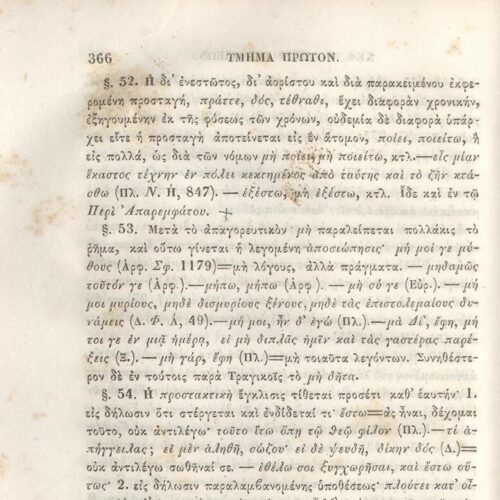 366 ΤΜΗΜΑ ΠΡΩΤΟΝ.
§. 52. Ἡ δι’ ἐνεστῶτος, δι’ ἀορίστου καὶ διὰ παρακειμένου ἐκφε-
ρομένη προσταγή, πράττε, δός, τέθναθι, ἔχει διαφορὰν χρονικήν,
ἐξηγουμένην ἐκ τῆς φύσεως τῶν χρόνων, οὐδεμία δὲ διαφορὰ ὑπάρ-
χει εἴτε ἡ προσταγὴ ἀποτείνεται εἰς ἓν ἄτομον, ποίει, ποιείτω, ἢ
εἰς πολλά, ὡς διὰ τῶν νόμων μὴ ποίει, μὴ ποιείτω, κτλ.—εἷς μίαν
ἕκαστος τέχνην ἐν πόλει κεκτημένος ἀπὸ ταύτης καὶ τὸ ζῆν κτά-
σθω (Πλ. Ν. Η, 847). — ἐξέστω, μὴ ἐξέστω, κτλ. Ἴδε καὶ ἐν τῷ
Περὶ Ἀπαρεμφάτου. +
§. 53. Μετὰ τὸ ἀπαγορευτικὸν μὴ παραλείπεται πολλάκις τὸ
ῥῆμα, καὶ οὕτω γίνεται ἡ λεγομένη ἀποσιώπησις· μή μοι γε μύ-
θους (Ἀρφ. Σφ. 1179)=μὴ λόγους, ἀλλὰ πράγματα. — μηδαμῶς
τοῦτόν γε (Ἀρφ.). —μήπω, μήπω (Ἀρφ.). — μὴ σύ γε (Εὐρ.). —μή
μοι μυρίους, μηδὲ δισμυρίους ξένους, μηδὲ τὰς ἐπιστολιμαίους δυ-
νάμεις (Δ. Φ. Α, 49).—μή μοι, ἦν δ’ ἐγώ (Πλ.).—μὰ Δί’, ἔφη, μή
τοι γε ἐν μιᾷ ἡμέρᾳ, εἰ μὴ διπλᾶς ἡμῖν καὶ τὰς γαστέρας παρέ-
ξεις (Ξ.). — μὴ γάρ, ἔφη (Πλ.)=μὴ τοιαῦτα λεγόντων. Συνηθέστε-
ρον δὲ ἐν τούτοις παρὰ Τραγικοῖς τὸ μὴ δῆτα.
§. 54. Ἡ προστακτικὴ ἔγκλισις τίθεται προσέτι καθ’ ἑαυτήν· 1.
εἰς δήλωσιν ὅτι στέργεται καὶ ἐνδίδεταί τι· ἔστω=ἂς ᾖναι, δέχομαι
τοῦτο, οὐκ ἀντιλέγω· τοῦτο ἴτω ὅπῃ τῷ θεῷ φίλον (Πλ.).—τί ἀ-
πήγγειλας; εἰ μὲν ἀληθῆ, σώζου· εἰ δὲ ψευδῆ, δίκην δός (Δ.)=
οὐκ ἀντιλέγω σωθῆναί σε. — ἐθέλω σοι ξυγχωρῆσαι, καὶ ἔστω οὕ-
τως. 2. εἰς δήλωσιν παραλαμβανομένης ὑποθέσεως· πλούτει κατ’ οἶ-